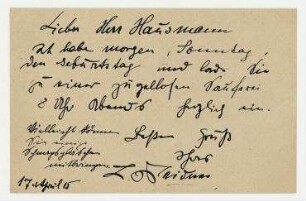 Lieber Herr Hausmann
ich habe morgen, Sonntag,
den Geburtstag und lade Sie
zu einer zügellosen Sauferei
8 Uhr Abends herzlich ein.
Vielleicht können
Sie einige
Schnapsgläschen
mitbringen
Besten Gruß
Ihres
L Meidner
17. April 15